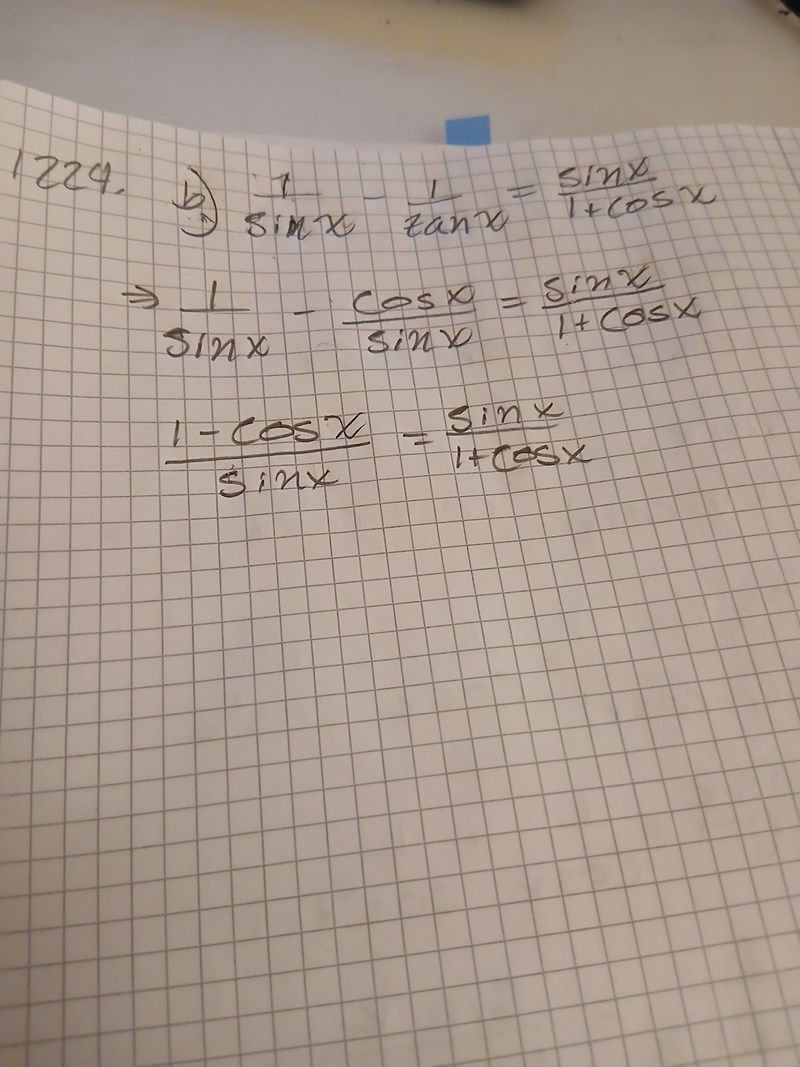 1224. b) 1/sinx - 1/tanx = sinx/1+cosx
⇒ 1/sinx - cosx/sinx = sinx/1+cosx
1-cosx/sinx = sinx/1+cosx